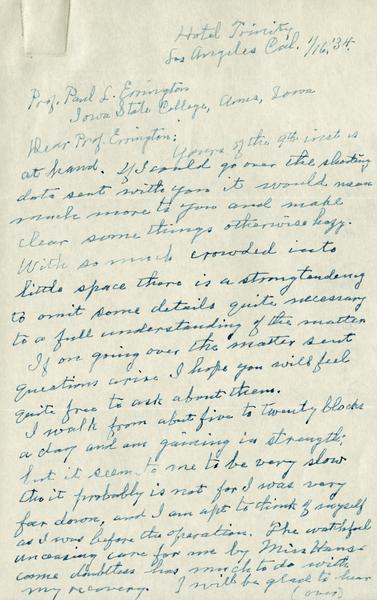 Hotel Trinity
Los Angeles Cal. 1/16, '34.
Prof. Paul L. Errington
Iowa State College, Ames, Iowa
Dear Prof. Errington;
Yours of the 9th inst is
at hand. If I could go over the shooting
data sent with you it would mean
much more to you and make
clear some things otherwise hazy.
With so much crowded into
little space there is a strong tendency
to omit some details quite necessary
to a full understanding of the matter
If on going over the matter sent
questions arise I hope you will feel
quite free to ask about them.
I walk from about five to twenty blocks
a day and am gaining in strength;
but it seems to me to be very slow
tho it probably is not for I was very
far down, and I am apt to think of myself
as I was before the operation. The watchful
unceasing care for me by Miss Hans-
come doubtless has much to do with
my recovery. I will be glad to hear
(over)